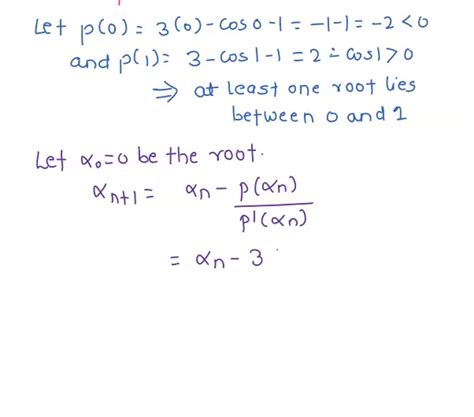 Let p(0) = 3(0)-cos0-1 = -1-1 = -2 < 0
and p(1) = 3-cos1-1 = 2-cos1 > 0
⇒ at least one root lies
between 0 and 1
Let α₀=0 be the root.
αn+1 = αn - p(αn)
p'(αn)
= αn - 3